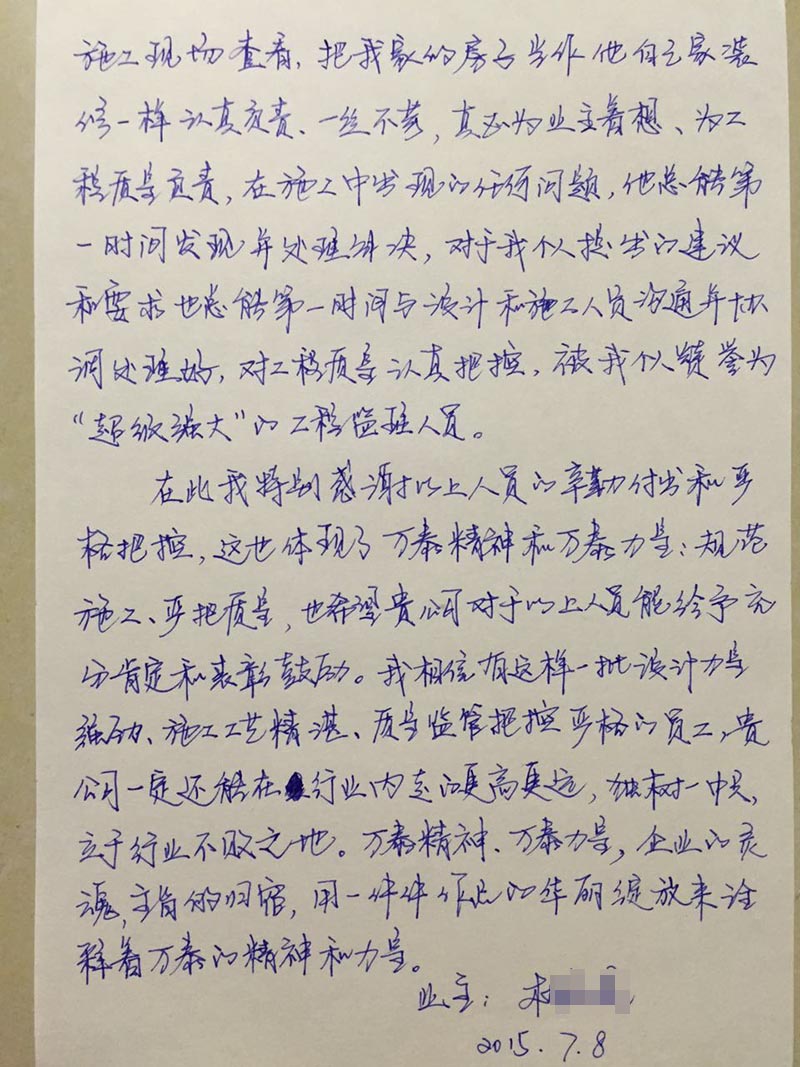 施工现场查看，把我家的房子当作他自己家装
修一样认真负责、一丝不苟，真正为业主着想、为工
程质量负责，在施工中出现的任何问题，他总能第
一时间发现并处理解决，对于我个人提出的建议
和要求也总能第一时间与设计和施工人员沟通并协
调处理好，对工程质量认真把控，被我个人赞誉为
“超级强大”的工程监理人员。
在此我特别感谢以上人员的辛勤付出和严
格把控，这也体现了万泰精神和万泰力量：规范
施工、严把质量，也希望贵公司对于以上人员能给予充
分肯定和表彰鼓励。我相信有这样一批设计力量
强劲、施工工艺精湛、质量监管把控严格的员工，贵
公司一定还能在行业内走的更高更远，独树一帜，
立于行业不败之地。万泰精神、万泰力量，企业的灵
魂，主旨的归宿，用一件件作品的华丽绽放来诠
释着万泰的精神和力量。
业主：
2015.7.8